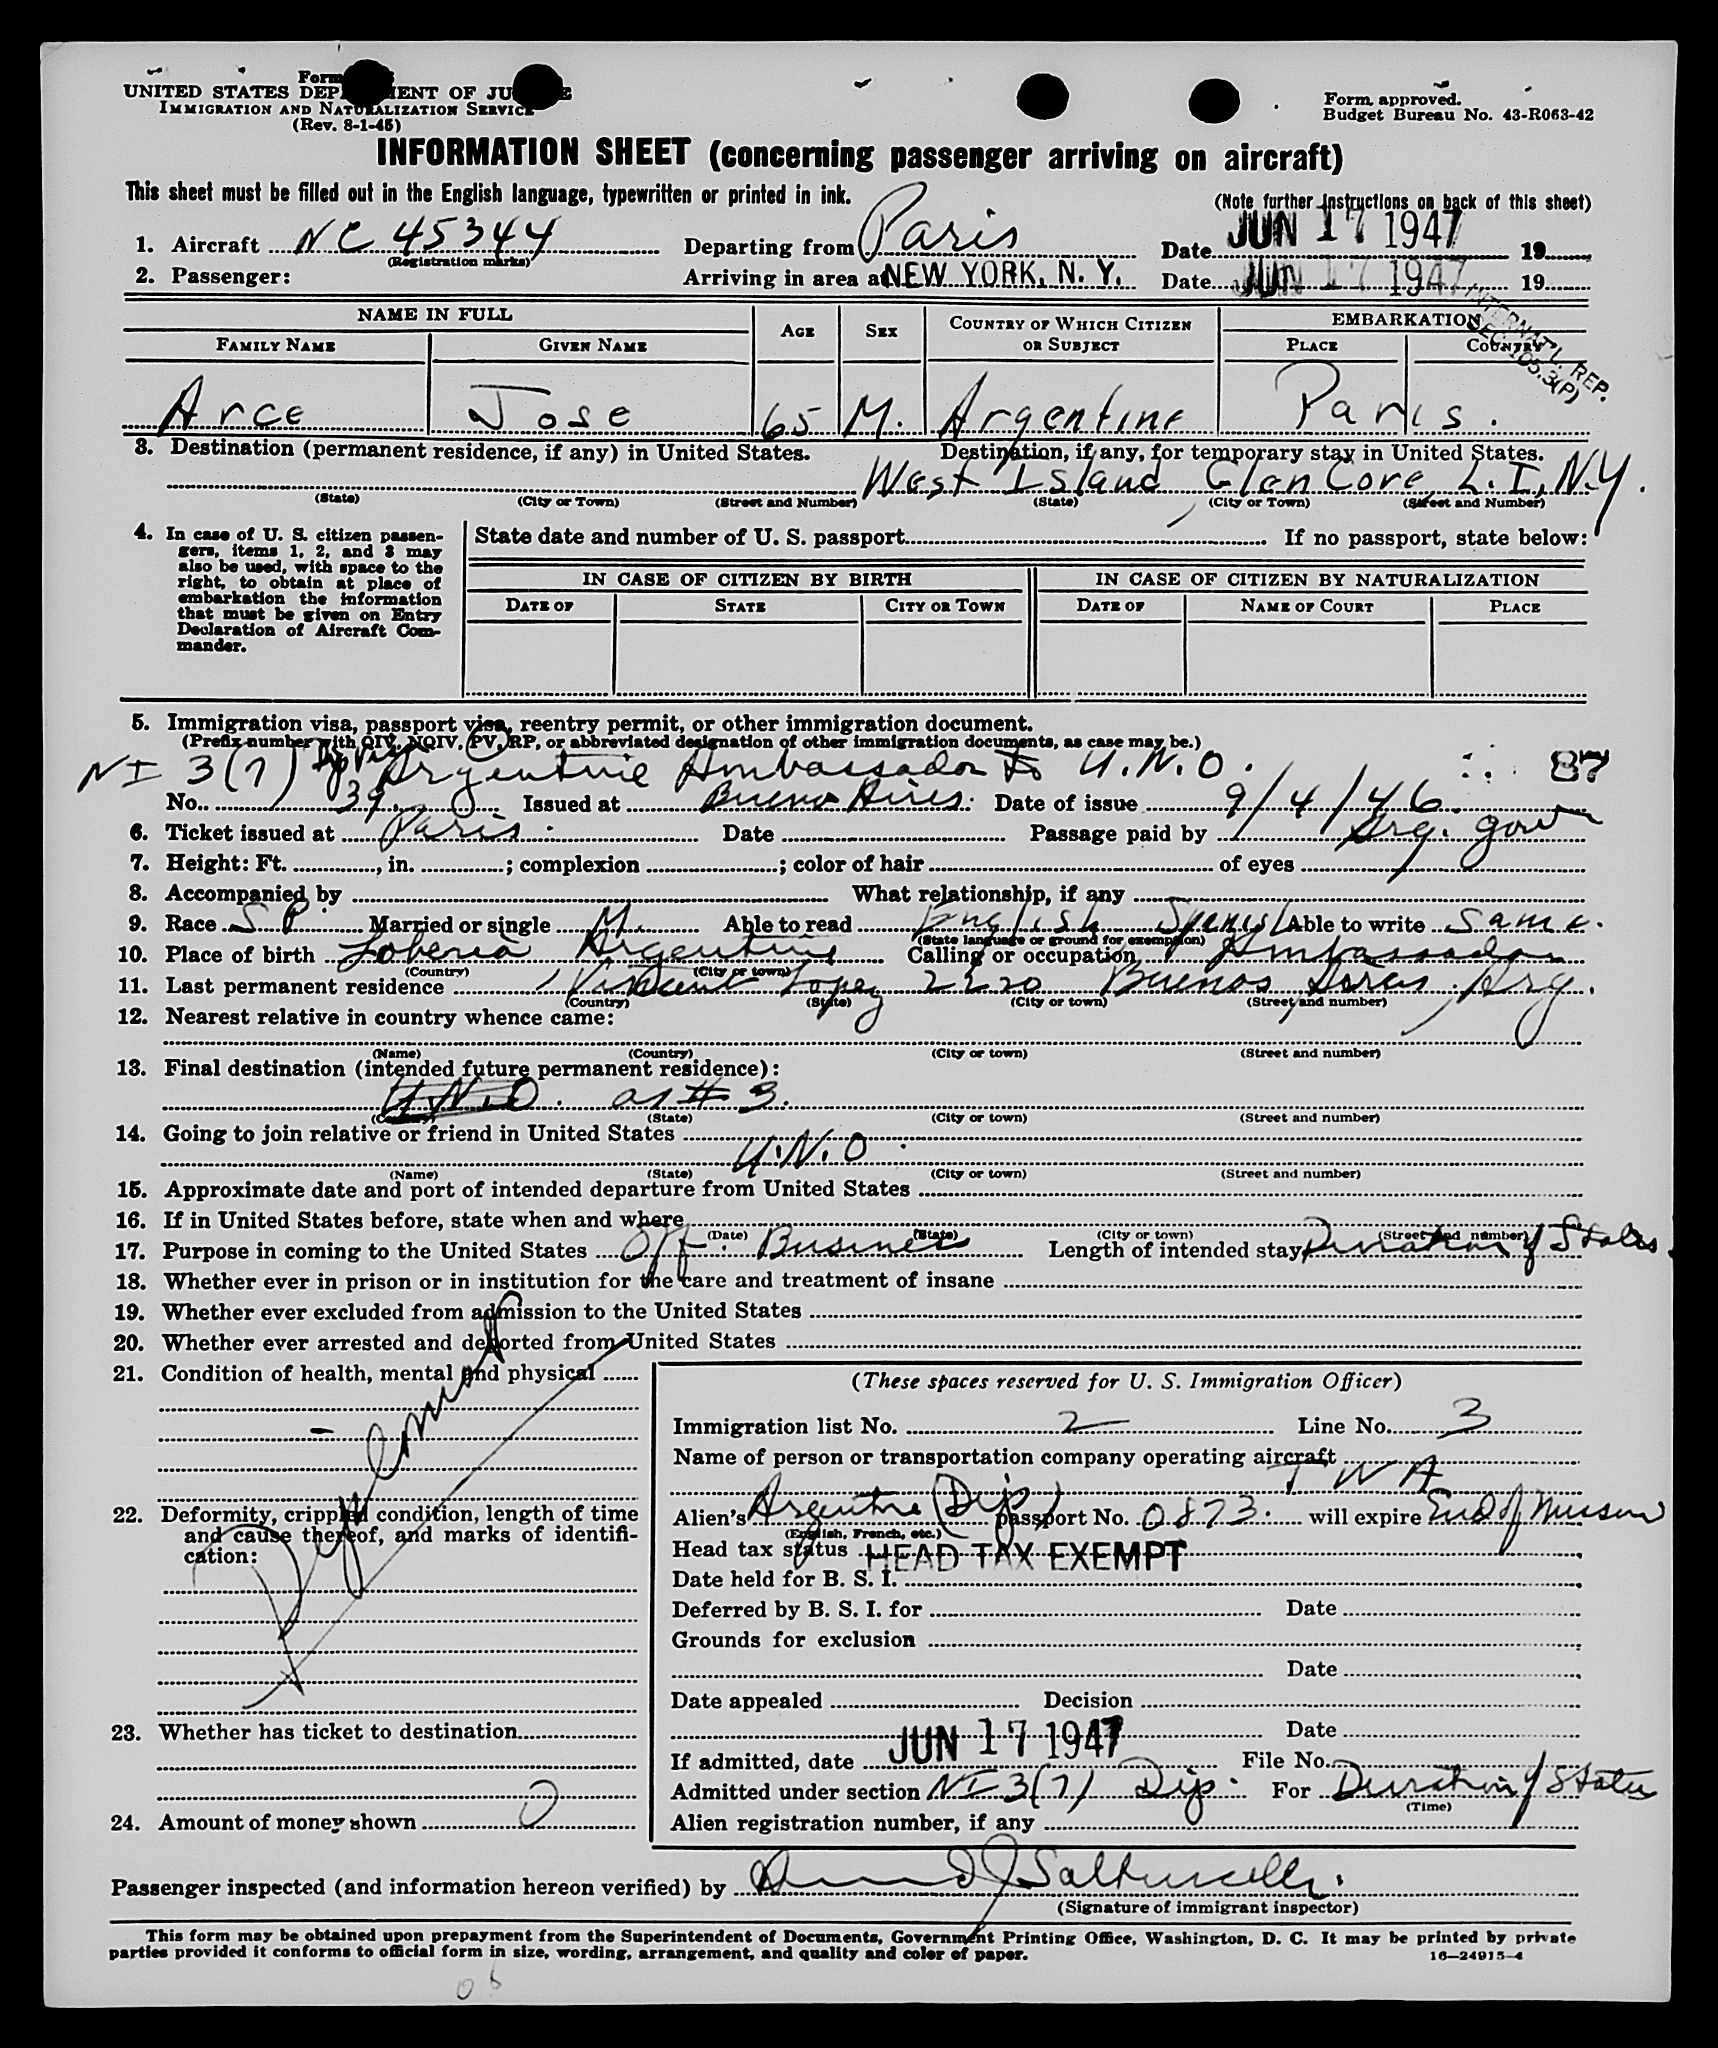 Form
UNITED STATES DEPARTMENT OF JUSTICE
IMMIGRATION AND NATURALIZATION SERVICE
(Rev. 8-1-45)
Form approved.
Budget Bureau No. 43-R063-42
INFORMATION SHEET (concerning passenger arriving on aircraft)
This sheet must be filled out in the English language, typewritten or printed in ink.
(Note further instructions on back of this sheet)
1. Aircraft NC 45344 Departing from Paris Date JUN 17 1947 19
(Registration marks)
2. Passenger: Arriving in area at NEW YORK, N. Y. Date JUN 17 1947 19
INTERNAT'L. REP.
SEC. 105.3(P)
NAME IN FULL AGE SEX COUNTRY OF WHICH CITIZEN OR SUBJECT EMBARKATION
FAMILY NAME GIVEN NAME PLACE COUNTRY
Arce Jose 65 M. Argentine Paris.
3. Destination (permanent residence, if any) in United States. Destination, if any, for temporary stay in United States.
West Island, Glen Cove, L.I., N.Y.
(State) (City or Town) (Street and Number) (State) (City or Town) (Street and Number)
4. In case of U. S. citizen passen-
gers, items 1, 2, and 3 may
also be used, with space to the
right, to obtain at place of
embarkation the information
that must be given on Entry
Declaration of Aircraft Com-
mander.
State date and number of U. S. passport If no passport, state below:
IN CASE OF CITIZEN BY BIRTH IN CASE OF CITIZEN BY NATURALIZATION
DATE OF STATE CITY OR TOWN DATE OF NAME OF COURT PLACE
5. Immigration visa, passport visa, reentry permit, or other immigration document.
(Prefix number with QIV, NQIV, PV, RP, or abbreviated designation of other immigration documents, as case may be.)
NI 3(7) Dip Visa Argentine Ambassador to U.N.O. 87
No. 39 Issued at Buenos Aires. Date of issue 9/4/46
6. Ticket issued at Paris Date Passage paid by Arg. govt
7. Height: Ft. , in. ; complexion ; color of hair of eyes
8. Accompanied by What relationship, if any
9. Race SP. Married or single M. Able to read English Spanish Able to write same.
(State language or ground for exemption)
10. Place of birth Loberia Argentine Calling or occupation Ambassador
(Country) (City or town)
11. Last permanent residence Vincent Lopez 2220 Buenos Aires, Arg.
(Country) (State) (City or town) (Street and number)
12. Nearest relative in country whence came:
(Name) (Country) (City or town) (Street and number)
13. Final destination (intended future permanent residence):
U.N.O. as # 3.
(Country) (State) (City or town) (Street and number)
14. Going to join relative or friend in United States
U.N.O.
(Name) (State) (City or town) (Street and number)
15. Approximate date and port of intended departure from United States
16. If in United States before, state when and where
(Date) (State) (City or town) (Street and number)
17. Purpose in coming to the United States Off. Business Length of intended stay Duration of Status.
18. Whether ever in prison or in institution for the care and treatment of insane
19. Whether ever excluded from admission to the United States
20. Whether ever arrested and deported from United States
21. Condition of health, mental and physical
Diplomat
22. Deformity, crippled condition, length of time
and cause thereof, and marks of identifi-
cation:
23. Whether has ticket to destination
24. Amount of money shown 0
(These spaces reserved for U. S. Immigration Officer)
Immigration list No. 2 Line No. 3
Name of person or transportation company operating aircraft
TWA
Alien's Argentine (Dip) passport No. 0873. will expire End of Mission
(English, French, etc.)
Head tax status HEAD TAX EXEMPT
Date held for B. S. I.
Deferred by B. S. I. for Date
Grounds for exclusion
Date
Date appealed Decision
Date
If admitted, date JUN 17 1947 File No.
Admitted under section NI 3(7) Dip. For Duration of Status
(Time)
Alien registration number, if any
Passenger inspected (and information hereon verified) by
(Signature of immigrant inspector)
This form may be obtained upon prepayment from the Superintendent of Documents, Government Printing Office, Washington, D. C. It may be printed by private
parties provided it conforms to official form in size, wording, arrangement, and quality and color of paper.
16—24915-4